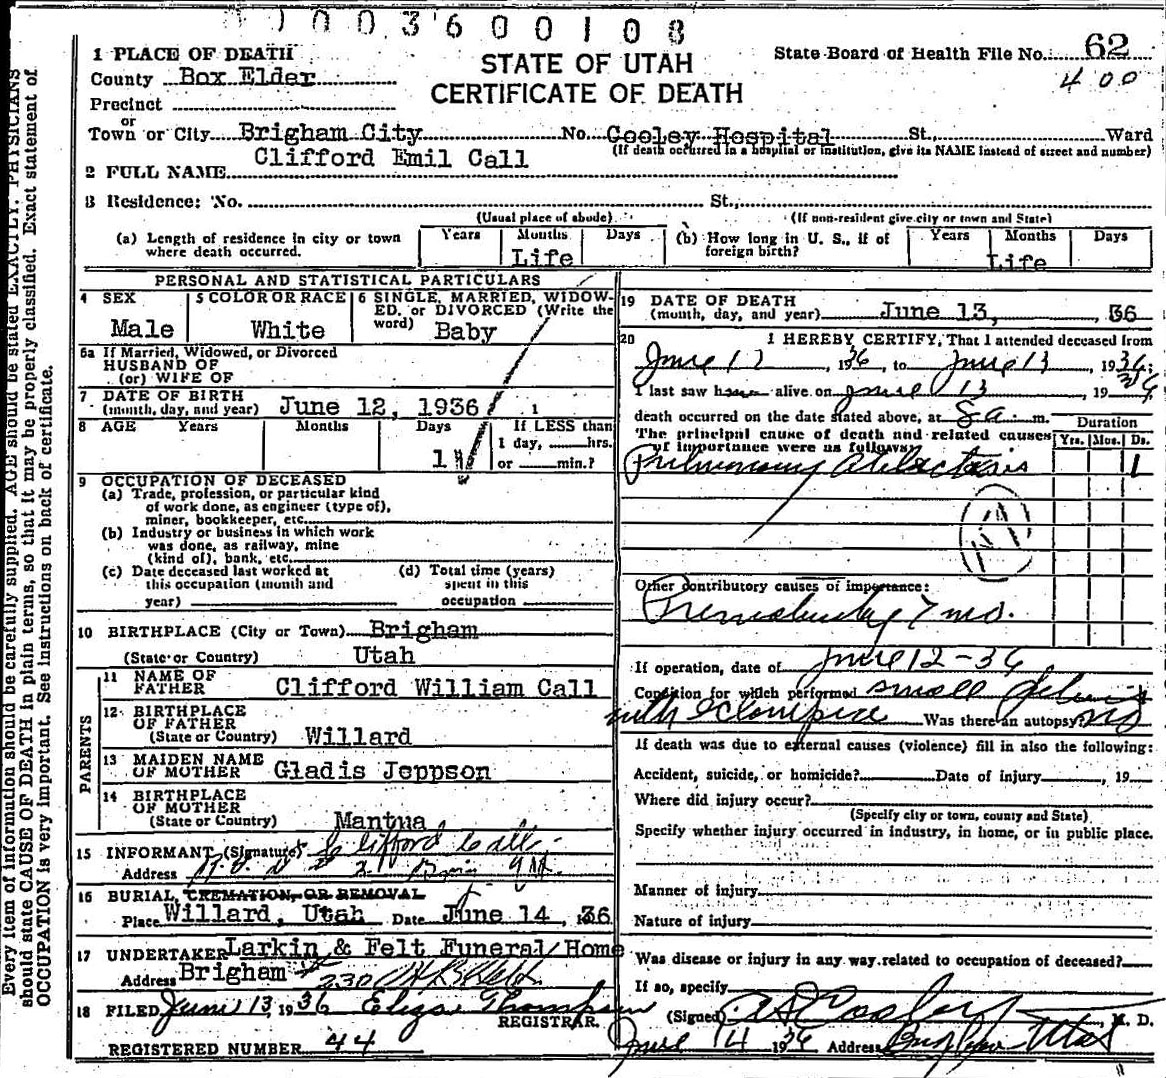 003600108
1 PLACE OF DEATH
STATE OF UTAH
CERTIFICATE OF DEATH
State Board of Health File No. 62
400
County Box Elder
Precinct
or
Town or City Brigham City No. Cooley Hospital St., Ward
(If death occurred in a hospital or institution, give its NAME instead of street and number)
2 FULL NAME Clifford Emil Call
3 Residence: No. St.,
(Usual place of abode) (If non-resident give city or town and State)
(a) Length of residence in city or town where death occurred. Years Months Days Life
(b) How long in U. S., if of foreign birth? Years Months Days Life
PERSONAL AND STATISTICAL PARTICULARS
4 SEX Male
5 COLOR OR RACE White
6 SINGLE, MARRIED, WIDOW-
ED, or DIVORCED (Write the
word) Baby
6a If Married, Widowed, or Divorced
HUSBAND OF
(or) WIFE OF
7 DATE OF BIRTH
(month, day, and year) June 12, 1936
8 AGE Years Months Days 1
If LESS than
1 day, hrs.
or min.?
9 OCCUPATION OF DECEASED
(a) Trade, profession, or particular kind
of work done, as engineer (type of),
miner, bookkeeper, etc.
(b) Industry or business in which work
was done, as railway, mine
(kind of), bank, etc.
(c) Date deceased last worked at
this occupation (month and
year)
(d) Total time (years)
spent in this
occupation
10 BIRTHPLACE (City or Town) Brigham
(State or Country) Utah
PARENTS
11 NAME OF
FATHER Clifford William Call
12 BIRTHPLACE
OF FATHER
(State or Country) Willard
13 MAIDEN NAME
OF MOTHER Gladis Jeppson
14 BIRTHPLACE
OF MOTHER
(State or Country) Mantua
15 INFORMANT (Signature) Clifford Call
Address
16 BURIAL, CREMATION, OR REMOVAL
Place Willard, Utah Date June 14, 1936
17 UNDERTAKER Larkin & Felt Funeral Home
Address Brigham # 230
18 FILED June 13, 1936 Eliza Thompson
REGISTRAR.
REGISTERED NUMBER 44
19 DATE OF DEATH
(month, day, and year) June 13, , 36
20 I HEREBY CERTIFY, That I attended deceased from
June 12, 1936, to June 13, 1936;
I last saw alive on June 13, 1936
death occurred on the date stated above, at 8 a. m.
The principal cause of death and related causes
of importance were as follows:
Duration
Yrs. Mos. Ds.
Pulmonary Atelectasis 1
Other contributory causes of importance:
Prematurity 7 mo.
If operation, date of June 12-36
Condition for which performed small pelvis
with Eclampsia Was there an autopsy? No
If death was due to external causes (violence) fill in also the following:
Accident, suicide, or homicide? Date of injury , 19
Where did injury occur?
(Specify city or town, county and State)
Specify whether injury occurred in industry, in home, or in public place.
Manner of injury
Nature of injury
Was disease or injury in any way related to occupation of deceased?
If so, specify
(Signed) A D Cooley, M. D.
June 14 1936 Address Brigham Utah
Every item of information should be carefully supplied. AGE should be stated EXACTLY. PHYSICIANS
should state CAUSE OF DEATH in plain terms, so that it may be properly classified. Exact statement of
OCCUPATION is very important. See instructions on back of certificate.